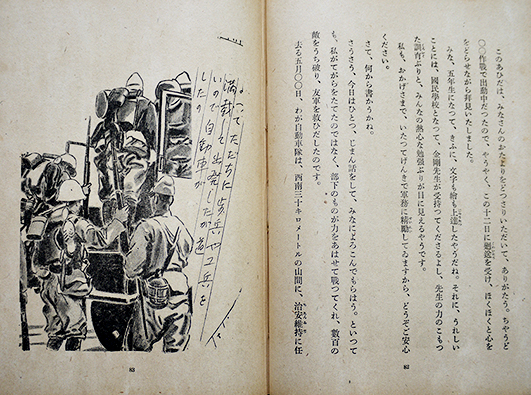 このあひだは、みなさんのおたよりをどつさりいただいて、ありがたう。ちやうど
〇〇作戰で出動中だつたので、やうやく、この十二日に廻送を受け、ほくほくと心を
をどらせながら拜見いたしました。
みな、五年生になつて、きふに、文字も繪も上達したやうだね。それに、うれしい
ことには、國民學校となつて、金剛先生が受持つてくださるよし、先生の力のこもつ
た訓育ぶりと、みんなの熱心な勉強ぶりが目に見えるやうです。
私も、おかげさまで、いたつてげんきで軍務に精勵してゐますから、どうぞご安心
ください。
さて、何から書かうかね。
さうさう、今日はひとつ、じまん話をして、みなによろこんでもらはう。といつて
も、私がてがらをたてたのではなく、部下のものが力をあはせて戰つてくれ、數百の
敵をうち破り、友軍を救ひだしたのです。
去る五月〇〇日、わが自動車隊は、西南三十キロメートルの山間に、治安維持に任
82
よつてただちに歩兵や工兵を
満載して出発したが道
いので自動車が
したの
83